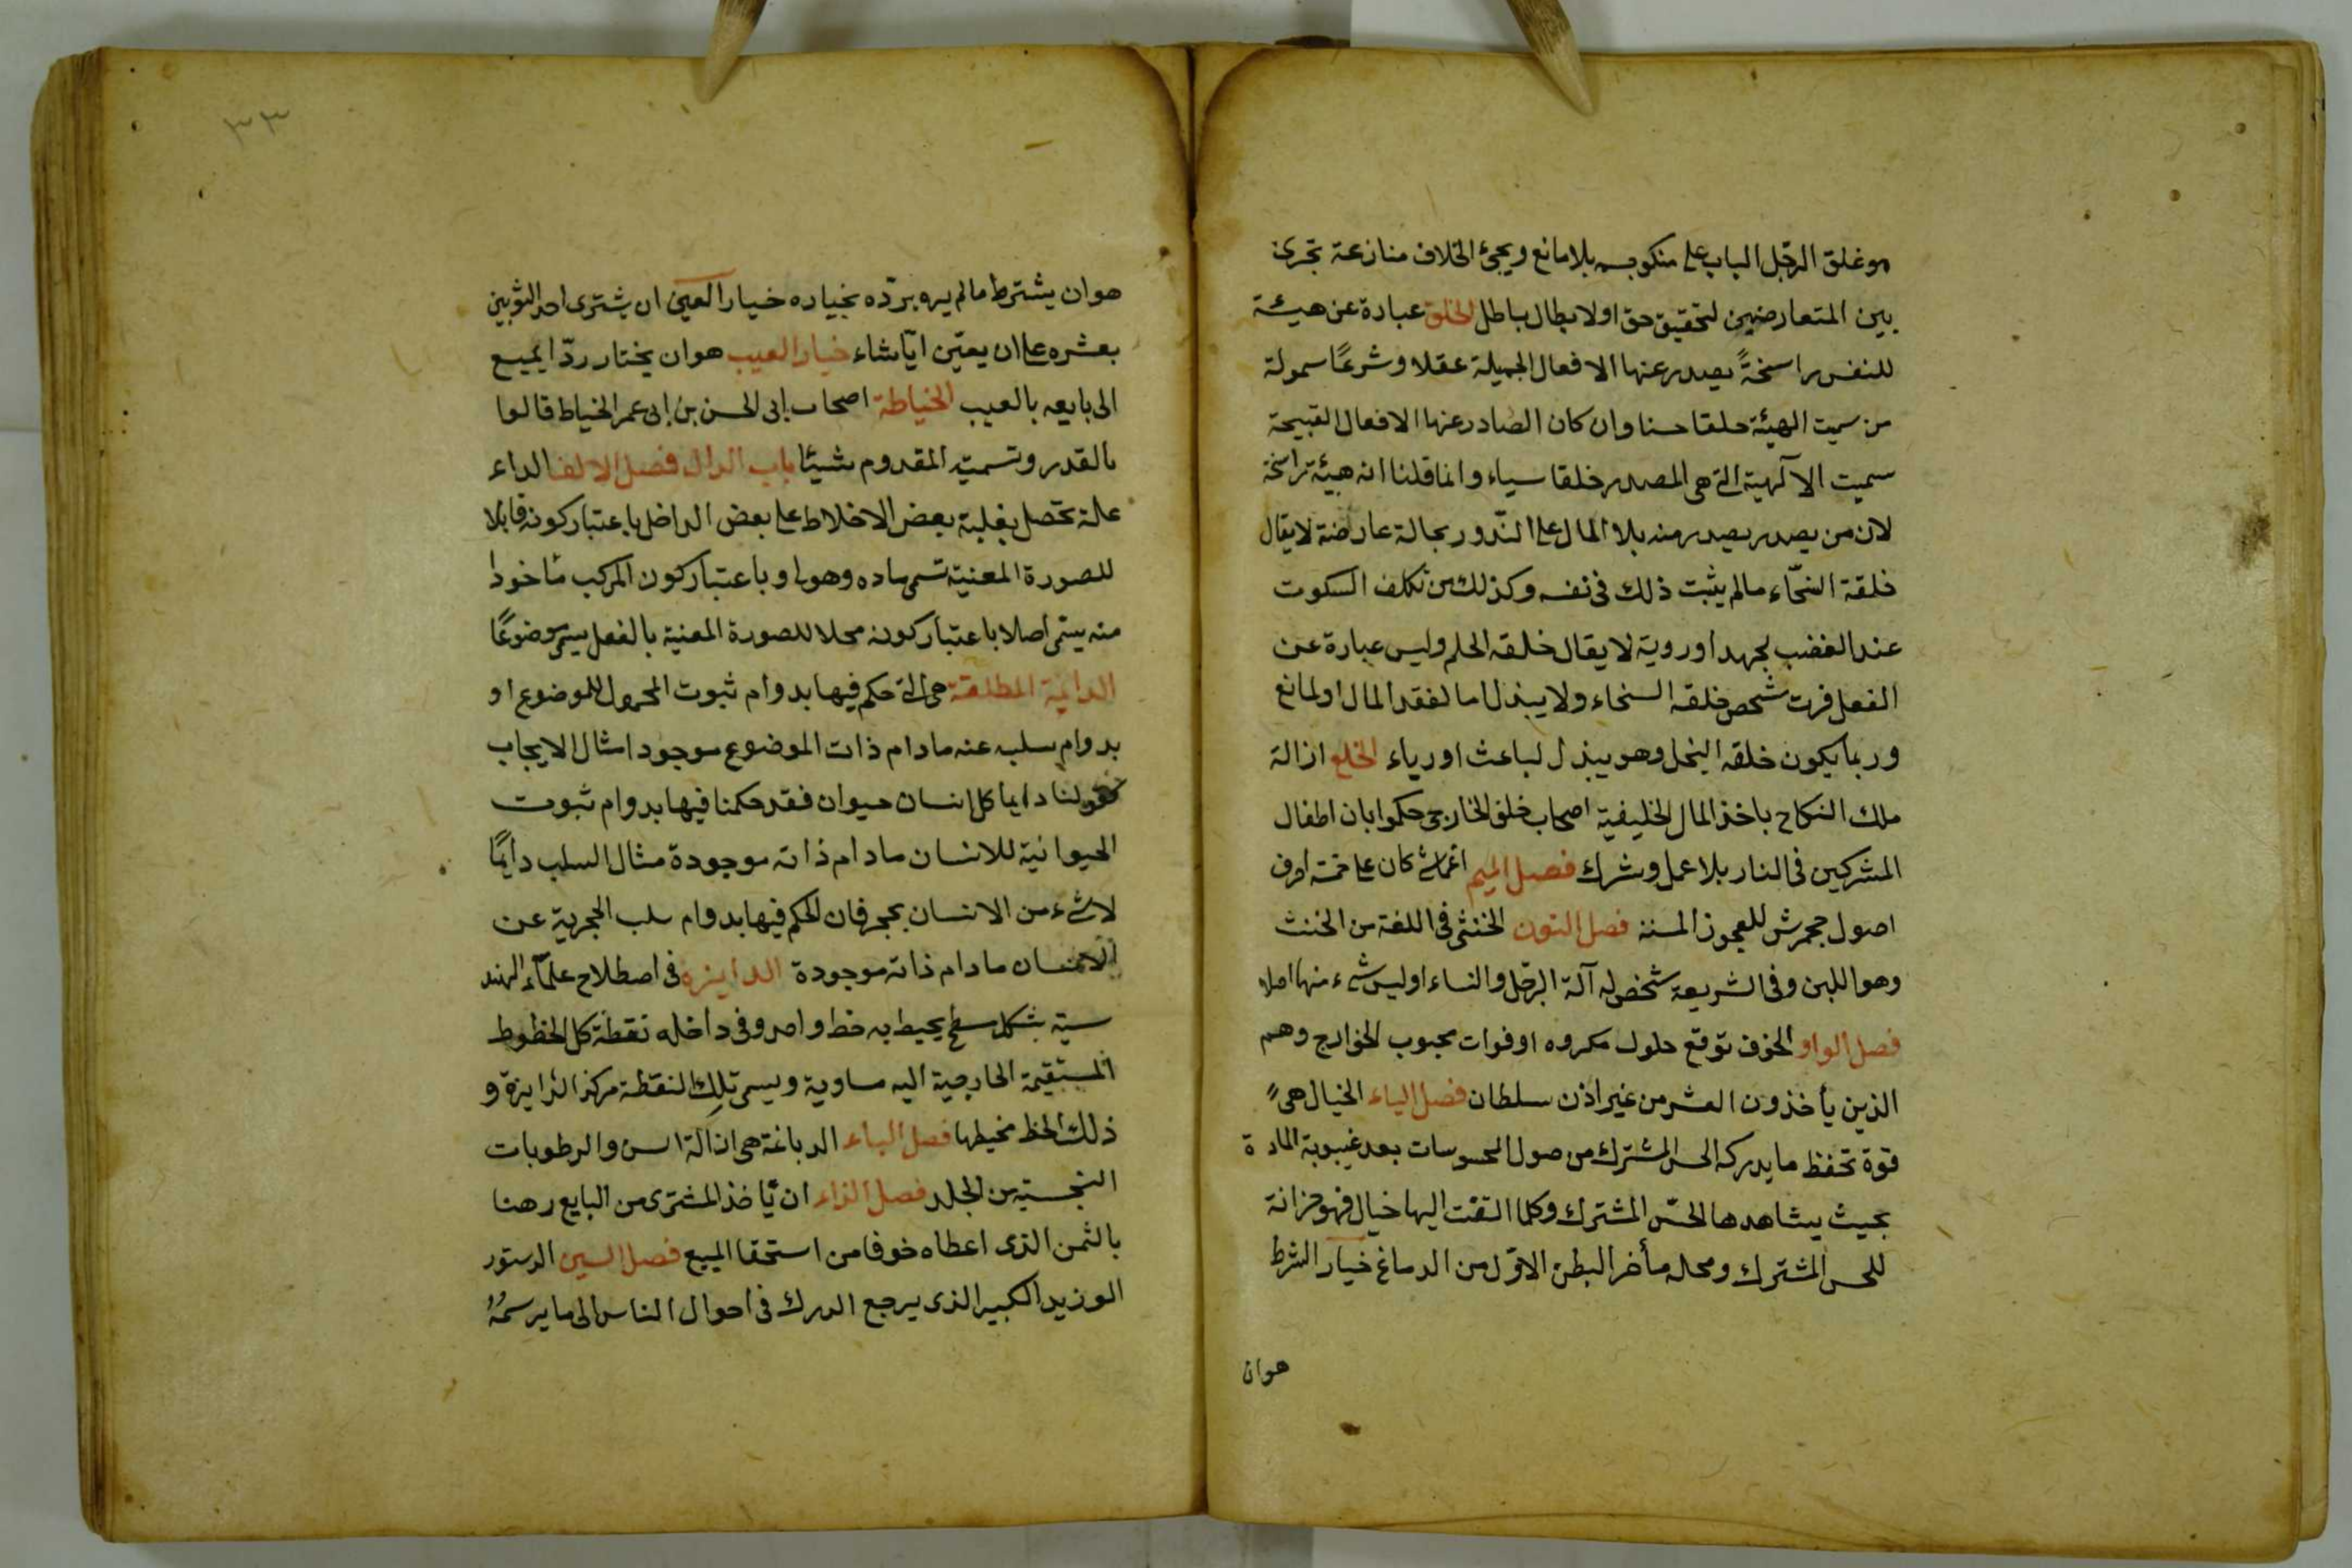 هو غلق الرّجل الباب على منكوحته بلا مانع ويجئ الخلاف منازعة تجرى
بين المتعارضين لتحقيق حق اولابطال باطل الخلق عبارة عن هيئة
للنفس راسخةً يصدر عنها الافعال الجميلة عقلا وشرعًا سهولة
من سميت الهيئة خلقا حسنا وان كان الصادر عنها الافعال القبيحة
سميت الآلهية التى هى المصدر خلقا سياء وانما قلنا انه هيئة راسخة
لان من يصدر يصدر منه بلا المال على النّدور بحالة عارضة لايقال
خلقة السخّاء مالم يثبت ذلك فى نفسه وكذلك من تكلف السكوت
عند الغضب بجهد اوروية لا يقال خلقه الحلم وليس عبارة عن
الفعل فرت شخص خلقه السخاء ولا يبذل اما لفقد المال او لمانع
وربما يكون خلقه البخل وهو يبذل لباعث اورياء الخلع ازالة
ملك النكاح باخذ المال الخليفية اصحاب خلف الخارجى حكموا بان اطفال
المشركين فى النار بلا عمل وشرك فصل الميم كان على خمسة احرف
اصول جحمرش للعجوز المسنة فصل النون الخنثى فى اللغة من الخنث
وهو اللين وفى الشريعة شخص له آلة الرّجل والنساء اوليس شىء منها اصلا
فصل الواو الخوف توقع حلول مكروه اوفوات محبوب الخوارج وهم
الذين يأخذون العشر من غير اذن سلطان فصل الياء الخيال هى
قوة تحفظ ما يدركه الحس المشترك من صول المحسوسات بعد غيبوبة المادة
بحيث يشاهدها الحسّ المشترك وكلما التفت اليها خيال فهو خزانة
للحس المشترك ومحله مأخر البطن الاوّل من الدماغ خيار الشرط
هوان
٣٣
هوان يشترط مالم يره يردّه بخياره خيار العين ان يشترى احد الثوبين
بعشره على ان يعيّن ايّا شاء خيار العيب هوان يختار ردّ المبيع
الى بايعه بالعيب الخياطة اصحاب ابى الحسن بن ابى عمر الخياط قالوا
بالقدر وتسميت المقدوم شيئا باب الدال فصل الالف الداء
علة تحصل بغلبة بعض الاخلاط على بعض الداخل باعتبار كونه قابلا
للصورة المعنية تسمى ماده وهولى وباعتبار كون المركب مأخودا
منه يسمّى اصلا باعتبار كونه محلا للصورة المعنية بالفعل يسمى موضوعًا
الدائمة المطلقة هى التى حكم فيها بدوام ثبوت المحمول للموضوع او
بدوام سلبه عنه مادام ذات الموضوع موجود امثال الايجاب
كقولنا دايما كل انسان حيوان فقد حكمنا فيها بدوام ثبوت
الحيوانية للانسان مادام ذاته موجودة مثال السلب دايمًا
لاشىء من الانسان بحجر فان الحكم فيها بدوام سلب الحجرية عن
الانسان مادام ذاته موجودة الدايرة فى اصطلاح علمآء الهند
سية شكل سطح يحيط به خط واحد وفى داخله نقطة كل الخطوط
المستقيمة الخارجية اليه مساوية ويسمى تلك النقطة مركز الدايرة و
ذلك الخط محيطها فصل الباء الدباغة هى ازالة والرطوبات
النجسية من الجلد فصل الراء ان يأخذ المشترى من البايع رهنا
بالثمن الذى اعطاه خوفا من استحقا المبيع فصل السين الدستور
الوزير الكبير الذى يرجع الدرك فى احوال الناس الى ما يرسمُهُ